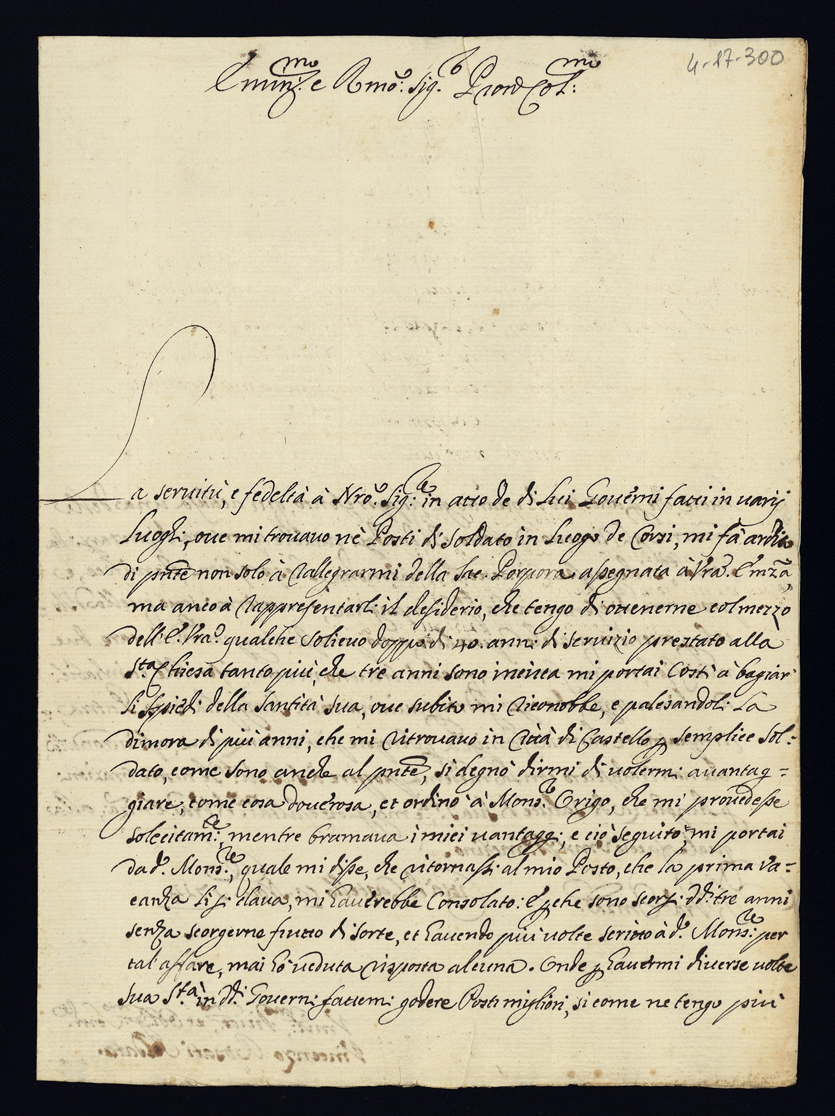 4-17-300
Emin.mo e Rmo: Sig.e Pron Col:mo
La servitù, e fedeltà à Nro: Sig.e in atto de di Lui Governi fatti in varij
Luoghi, ove mi trovavo nè Posti di Soldato in luogo de Corsi, mi fà ardito
di pnte non solo à rallegrarmi della Sac. Porpora assegnata à Vra. Emza,
ma anco à rappresentarli il desiderio, che tengo di ottenerne col mezzo
dell'E. Vra. qualche solievo doppo di 40. anni di servizio prestato alla
Sta. Chiesa tanto più, che tre anni sono incirca mi portai Costì à bagiar
li SS. piedi della Santità Sua, ove subito mi riconobbe, e palesandoli La
dimora di più anni, che mi ritrovavo in Città di Castello p semplice Sol:
dato, come sono anche al pnte, si degnò dirmi di volermi avantag=
giare, come cosa doverosa, et ordinò à Mons.e Origo, che mi provedesse
solecitam.e, mentre bramava i miei vantaggi; e ciò seguito mi portai
da d.o Mons.re, quale mi disse, che ritornassi al mio Posto, che la prima va=
canza si dava, mi haverebbe Consolato: E pche sono scorsi dd: tre anni
senza scorgerne frutto di sorte, et havendo più volte scritto à d.o Mons.re per
tal affare, mai hò veduta risposta alcuna. Onde p havermi diverse volte
Sua S.tà in dd: Governi fattemi godere Posti migliori, si come ne tengo più